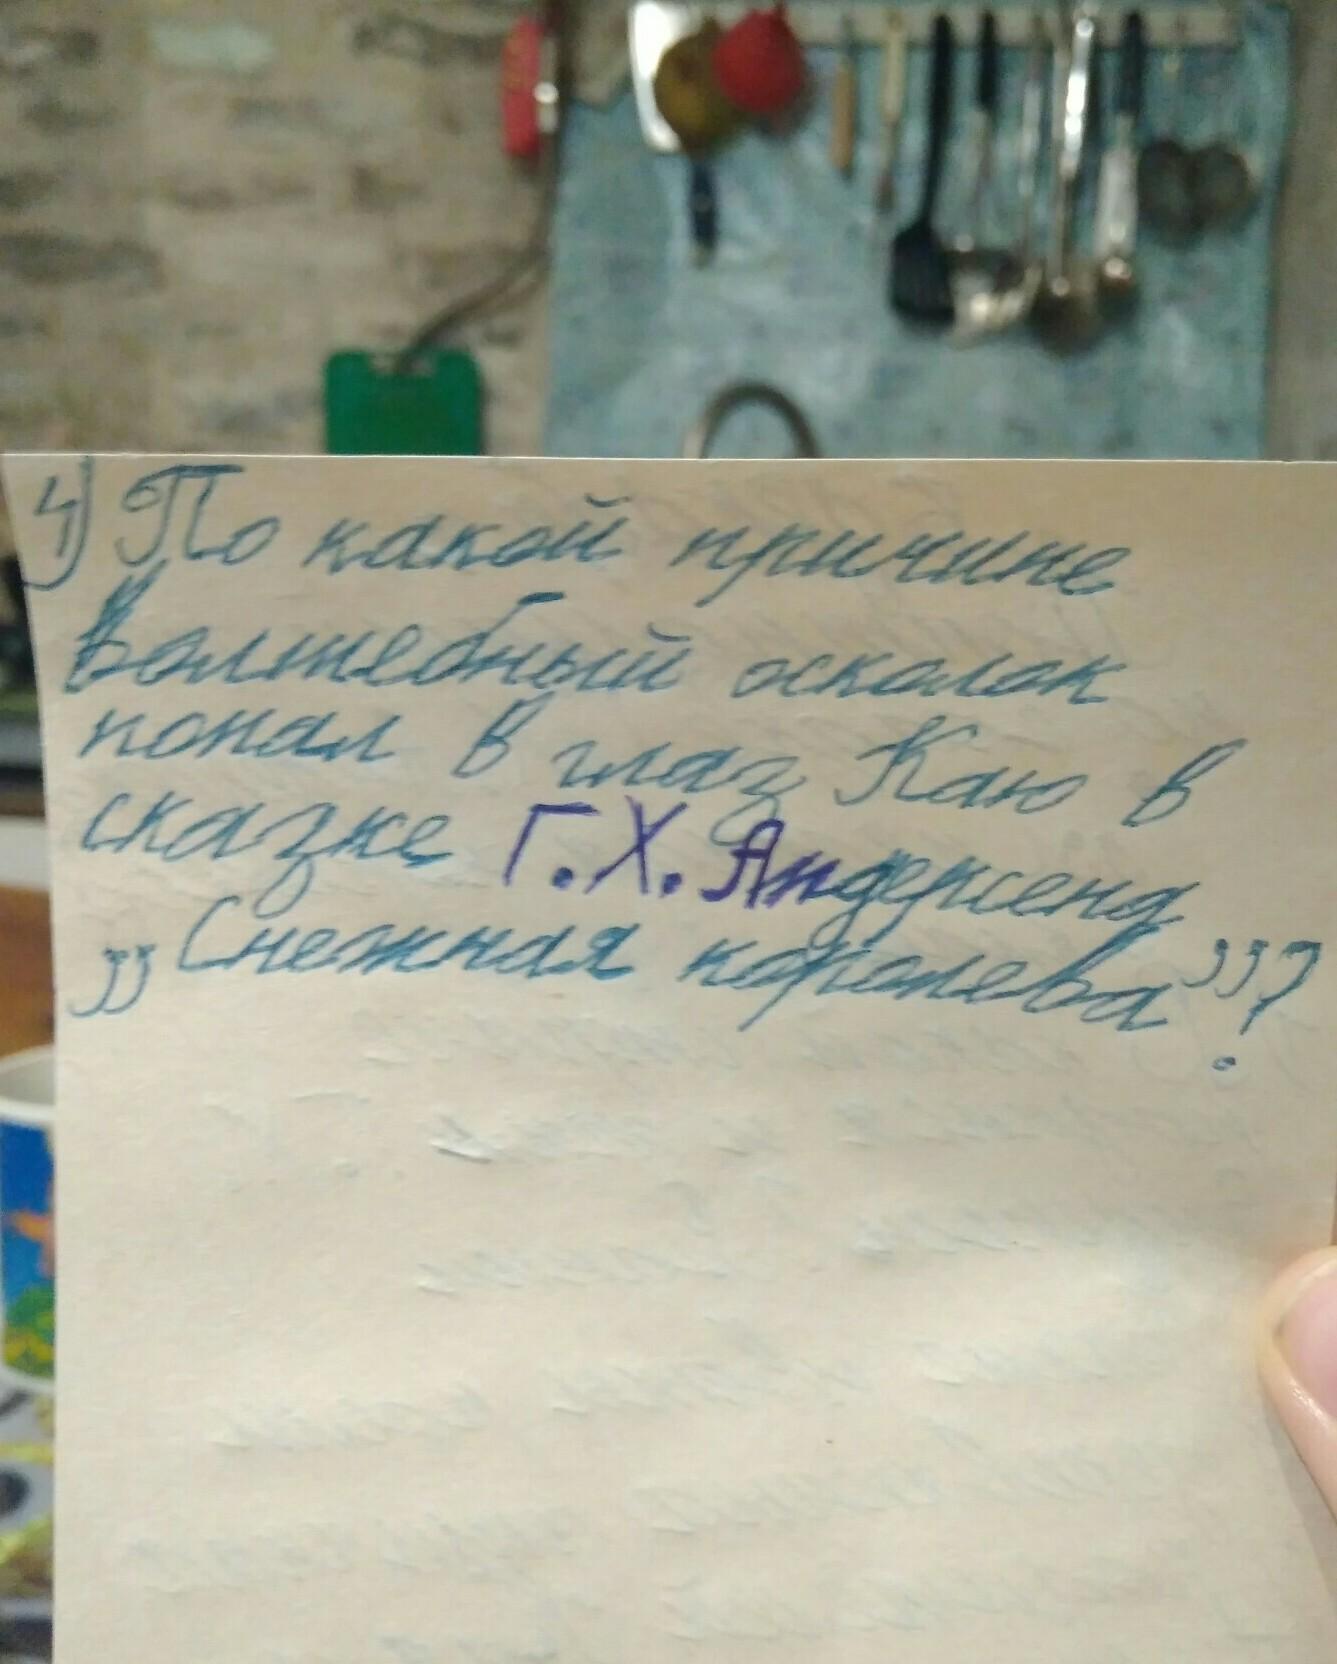 4) По какой причине
волшебный осколок
попал в глаз Каю в
сказке Г.Х. Андерсена
„Снежная королева”?